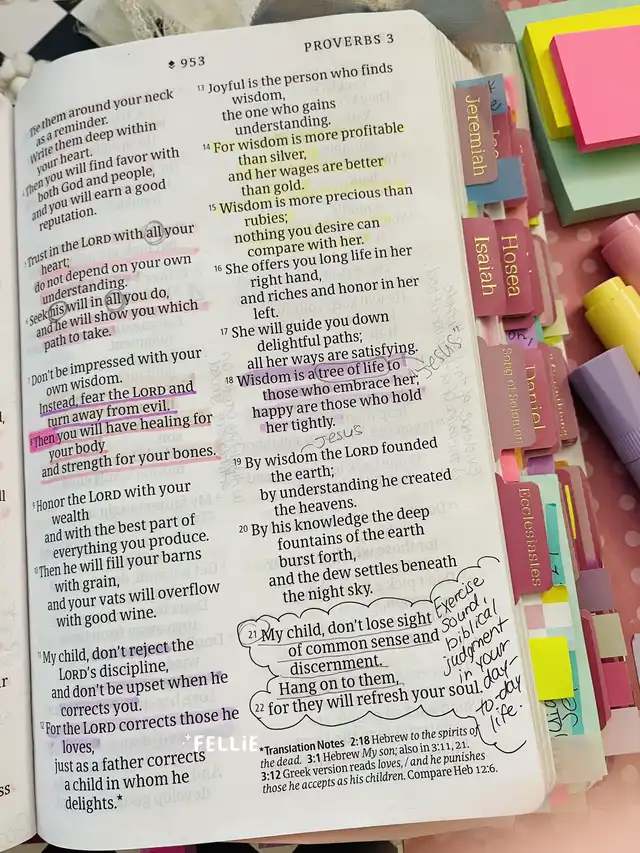 953
PROVERBS 3
Tie them around your neck
as a reminder.
Write them deep within
your heart.
4 Then you will find favor with
both God and people,
and you will earn a good
reputation.
5 Trust in the LORD with all your
heart;
do not depend on your own
understanding.
6 Seek his will in all you do,
and he will show you which
path to take.
7 Don't be impressed with your
own wisdom.
Instead, fear the LORD and
turn away from evil.
8 Then you will have healing for
your body
and strength for your bones.
9 Honor the LORD with your
wealth
and with the best part of
everything you produce.
10 Then he will fill your barns
with grain,
and your vats will overflow
with good wine.
11 My child, don't reject the
LORD's discipline,
and don't be upset when he
corrects you.
12 For the LORD corrects those he
loves,
just as a father corrects
a child in whom he
delights.*
13 Joyful is the person who finds
wisdom,
the one who gains
understanding.
14 For wisdom is more profitable
than silver,
and her wages are better
than gold.
15 Wisdom is more precious than
rubies;
nothing you desire can
compare with her.
16 She offers you long life in her
right hand,
and riches and honor in her
left.
17 She will guide you down
delightful paths;
all her ways are satisfying.
18 Wisdom is a tree of life to
those who embrace her;
happy are those who hold
her tightly.
Jesus
Jesus
19 By wisdom the LORD founded
the earth;
by understanding he created
the heavens.
20 By his knowledge the deep
fountains of the earth
burst forth,
and the dew settles beneath
the night sky.
21 My child, don't lose sight
of common sense and
discernment.
Hang on to them,
22 for they will refresh your soul.
Exercise
sound,
biblical
judgment
in your
day-
to-day
life.
*Translation Notes 2:18 Hebrew to the spirits of
the dead. 3:1 Hebrew My son; also in 3:11, 21.
3:12 Greek version reads loves, / and he punishes
those he accepts as his children. Compare Heb 12:6.
FELLiE
Jeremiah
Isaiah
Hosea
Song of Solomon
Daniel
Ecclesiastes